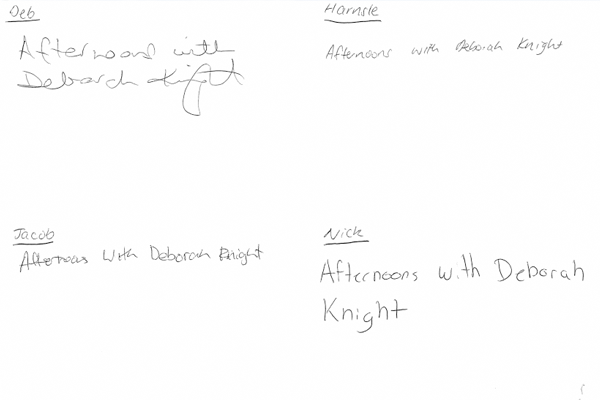 Deb
Afternoons with
Deborah Knight
Hamish
Afternoons with Deborah Knight
Jacob
Afternoons With Deborah Knight
Nick
Afternoons with Deborah
Knight